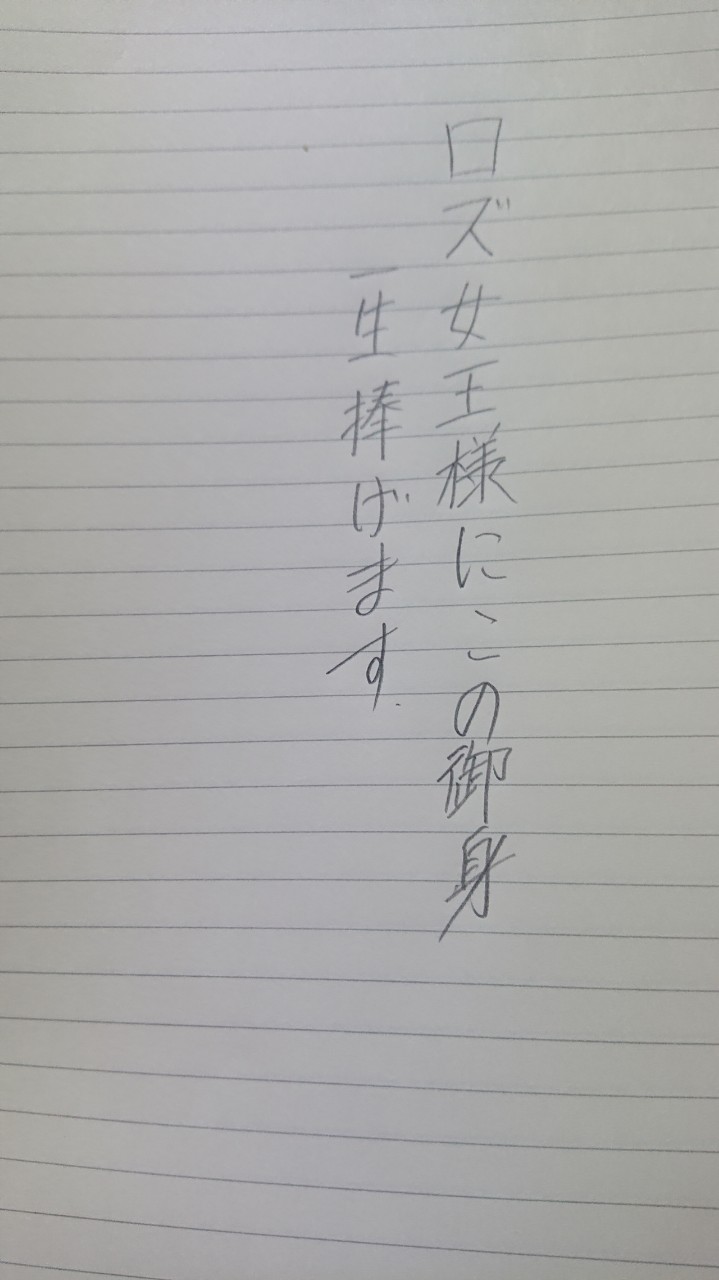 ロズ女王様にこの御身
一生捧げます.